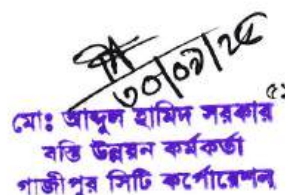 ৩০/০৯/২৫
মোঃ আব্দুল হামিদ সরকার
বস্তি উন্নয়ন কর্মকর্তা
গাজীপুর সিটি কর্পোরেশন